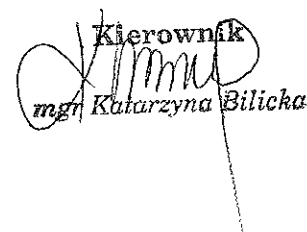 Kierownik
mgr Katarzyna Bilicka